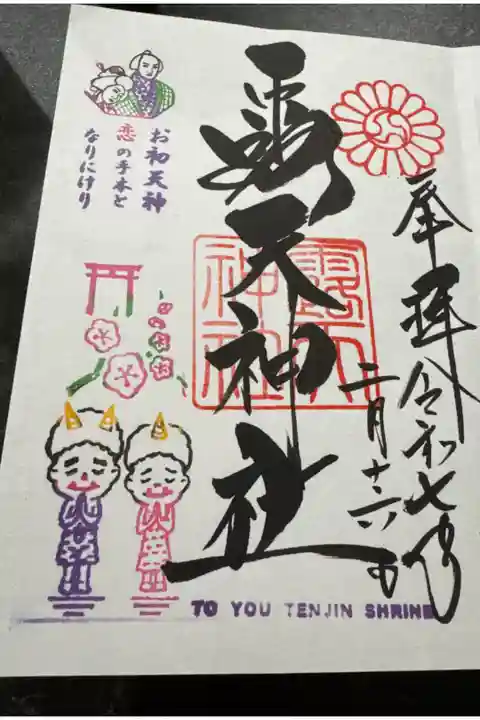 奉拝
令和七年
二月十六日
露天神社
露天
神社
お初天神
恋の手本と
なりにけり
TO YOU TENJIN SHRINE